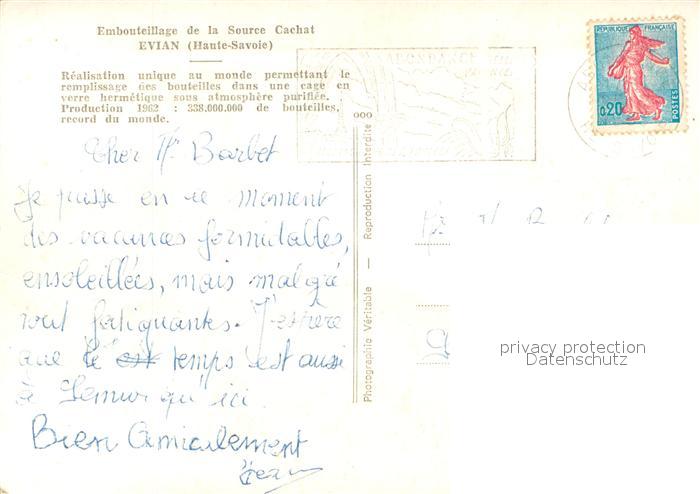 Embouteillage de la Source Cachat
EVIAN (Haute-Savoie)
Réalisation unique au monde permettant le
remplissage des bouteilles dans une cage en
verre hermétique sous atmosphère purifiée.
Production 1962 : 338.000.000 de bouteilles,
record du monde.
Cher Mr Barbet
Je passe en ce moment
des vacances formidables,
ensoleillées, mais malgré
tout fatiguantes. J'espère
que le est temps est aussi
à Semur qu'ici.
Bien Amicalement
Jean
ooo
Photographie Véritable — Reproduction Interdite
ABONDANCE
REPUBLIQUE FRANÇAISE
0,20
POSTES
privacy protection
Datenschutz